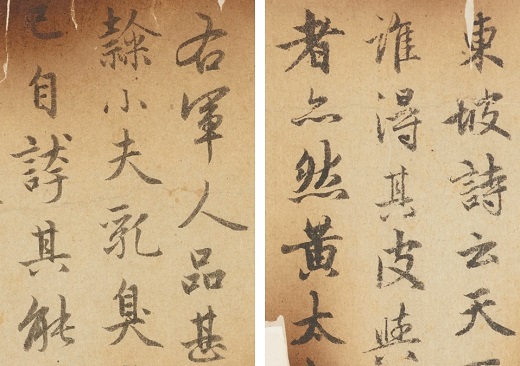 東坡詩云天
誰得其皮與
者亦然黄太
右軍人品甚
隸小夫乳臭
已自誇其能